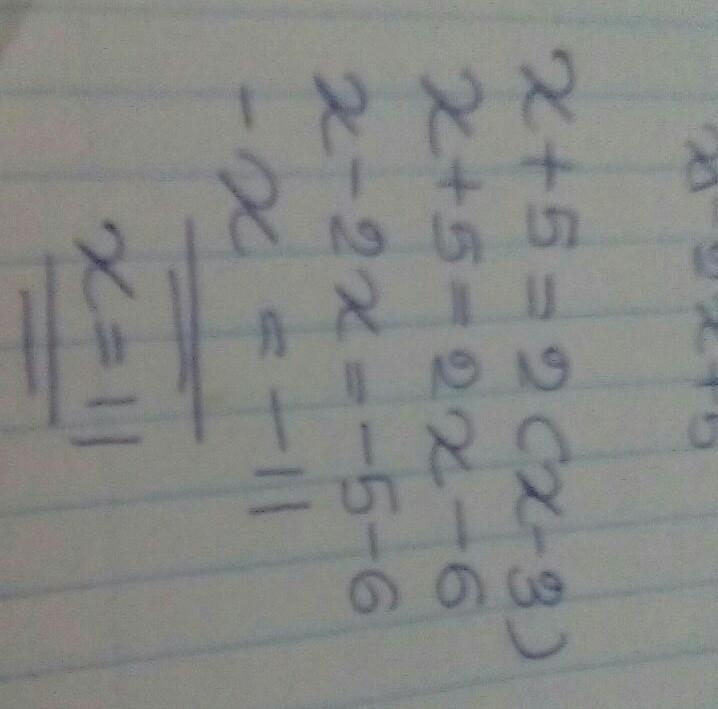 x+5=2(x-3)
x+5=2x-6
x-2x=-5-6
-x = -11
x=11